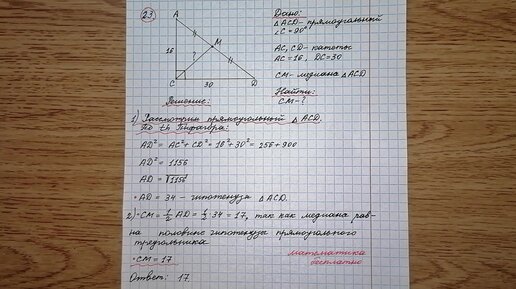 23
A
16
M
?
C
30
D
Дано:
△ACD - прямоугольный
∠C = 90°
AC, CD - катеты
AC = 16, DC = 30
CM - медиана △ACD
Найти:
CM - ?
Решение:
1) Рассмотрим прямоугольный △ACD.
По th Пифагора:
AD² = AC² + CD² = 16² + 30² = 256 + 900
AD² = 1156
AD = √1156
• AD = 34 - гипотенуза △ACD.
2) • CM = ½ AD = ½ 34 = 17, так как медиана рав-
на половине гипотенузы прямоугольного
треугольника
• CM = 17
Ответ: 17.
математика
бесплатно